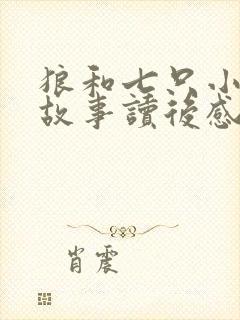 狼和七只小
故事讀後感
肖震